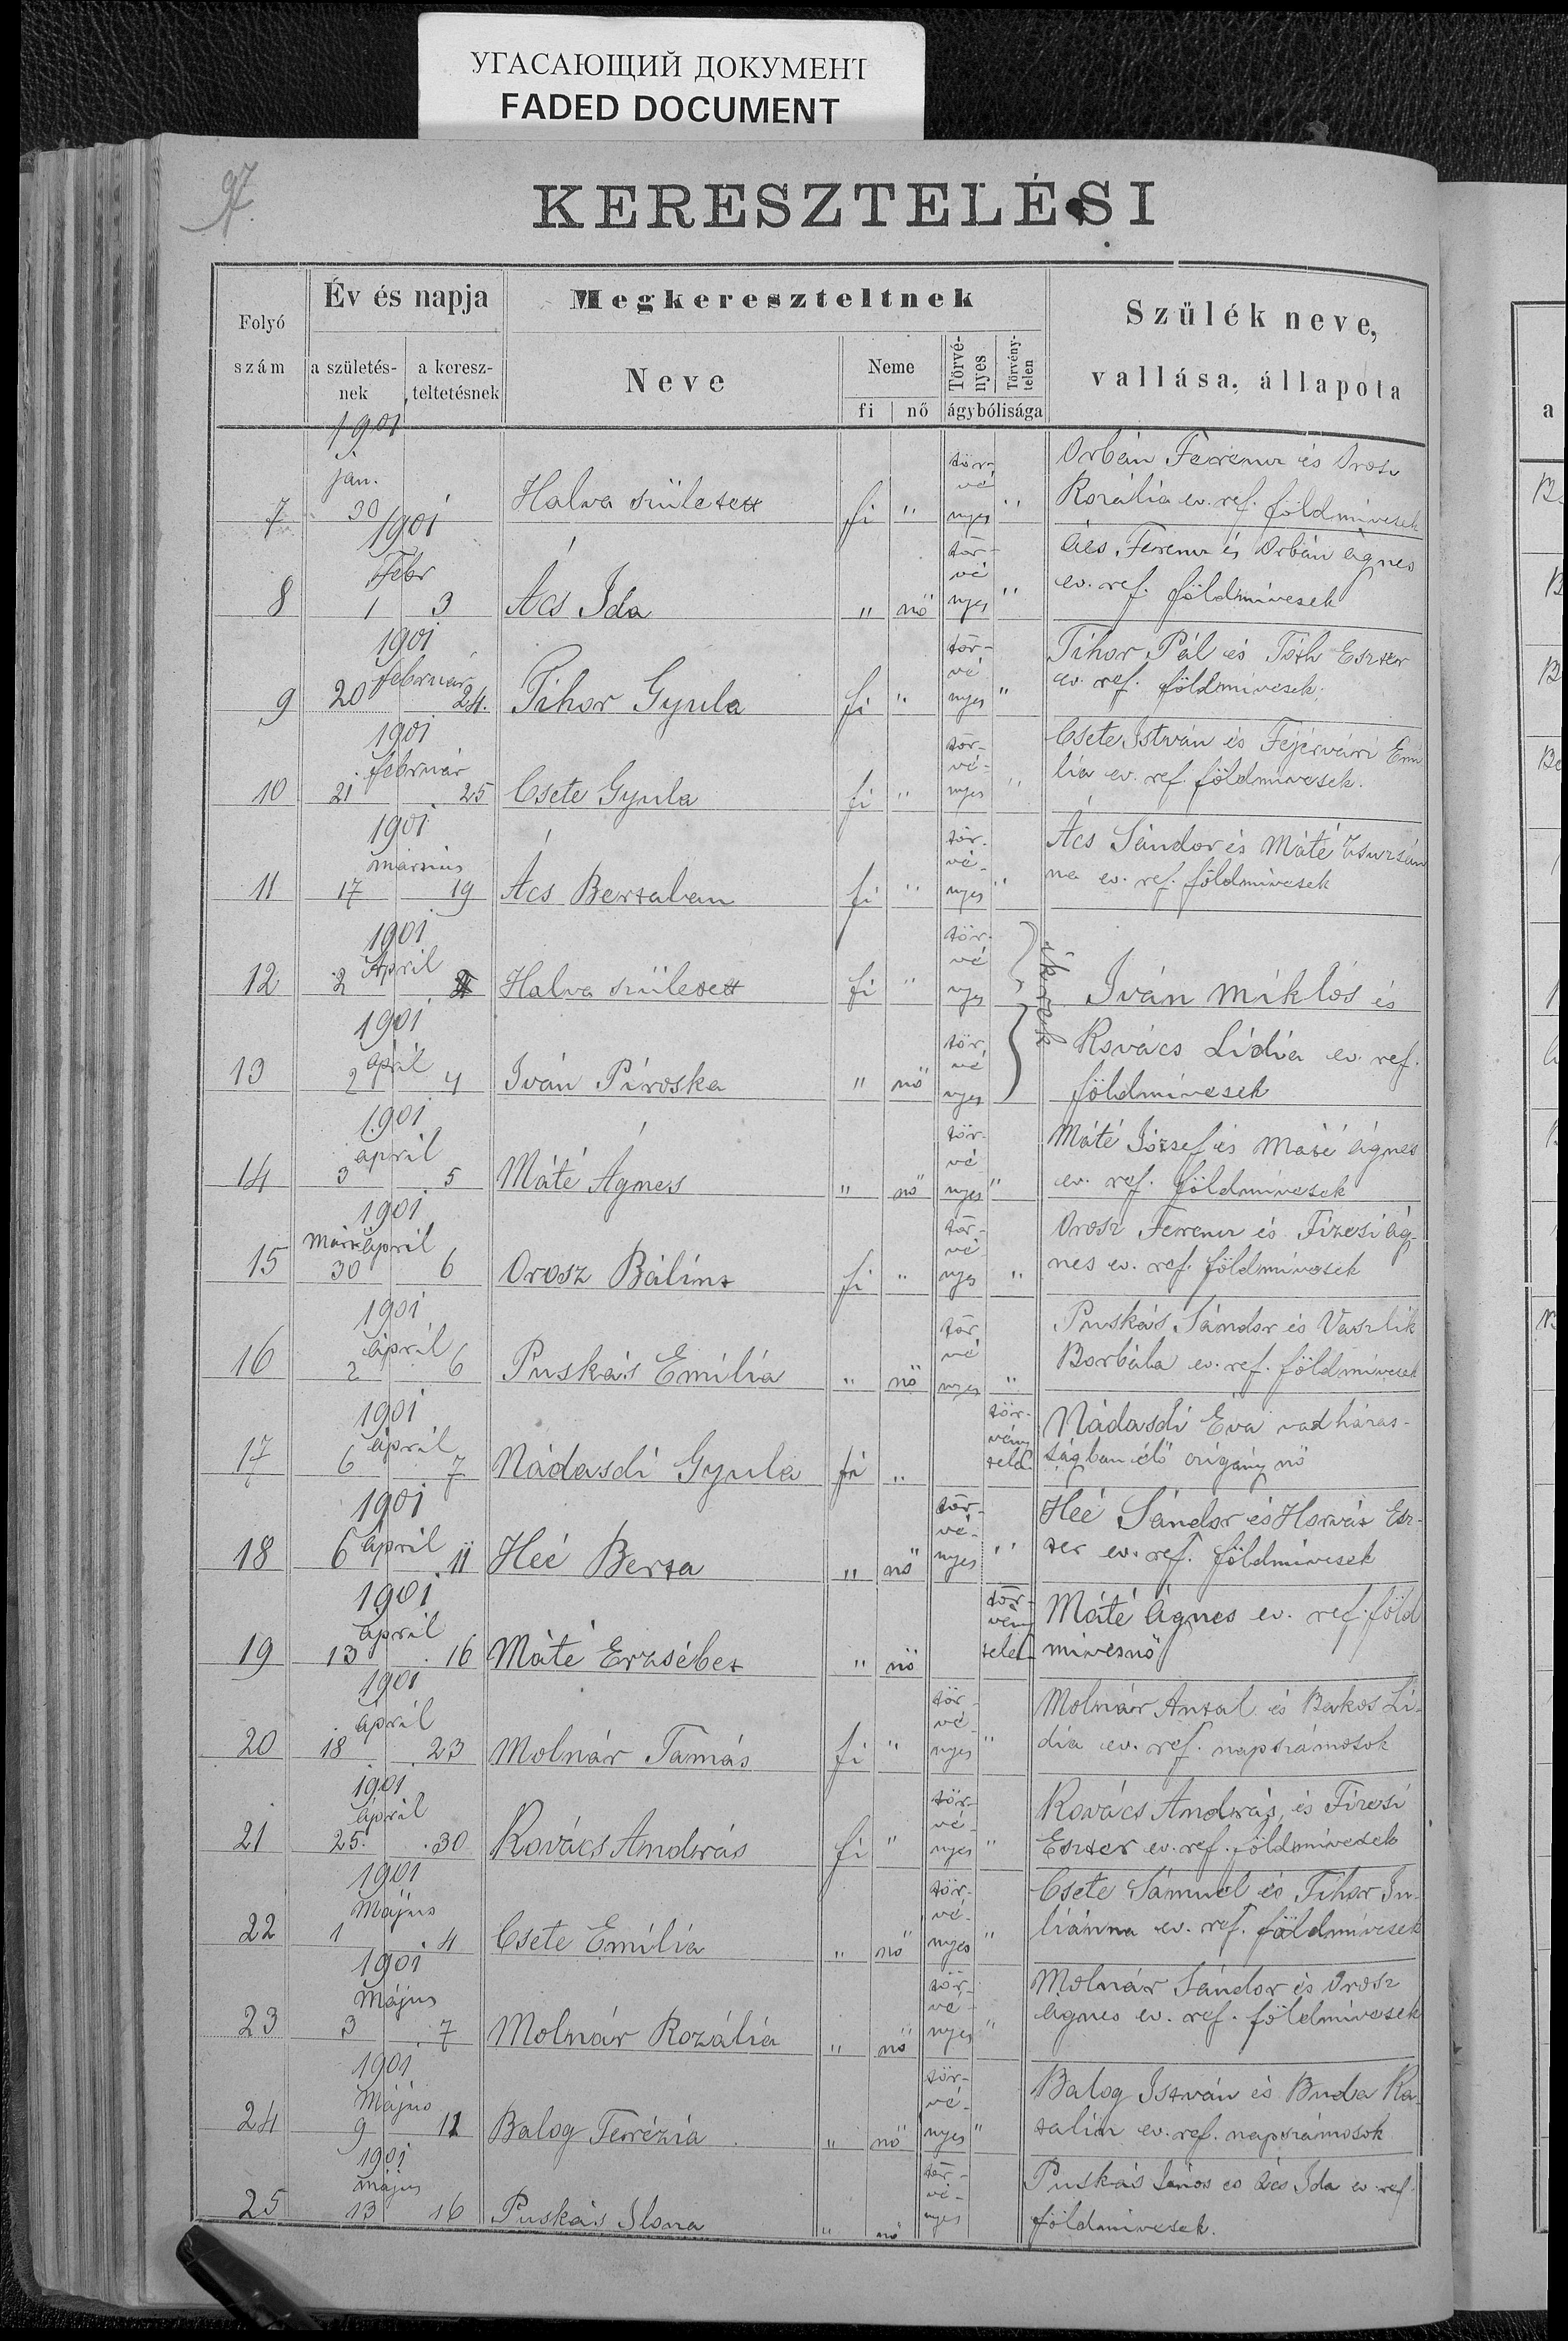 УГАСАЮЩИЙ ДОКУМЕНТ
FADED DOCUMENT
97.
KERESZTELÉSI
Folyó szám
Év és napja
a születés-nek
a keresz-teltetésnek
Megkereszteltnek
Neve
Neme
fi nő
Törvé-nyes
Törvény-telen
ágybólisága
Szülék neve,
vallása, állapota
1901
jan.
7 30 Halva született fi " tör-vé nyes "
Orbán Ferencz és Orosz
Rozália ev. ref. földmívesek
1901
Febr
8 1 3 Ács Ida " nő tör-vé nyes "
Ács Ferencz és Orbán Ágnes
ev. ref. földmívesek
1901
február
9 20 24. Tihor Gyula fi " tör-vé nyes "
Tihor Pál és Tóth Eszter
ev. ref. földmívesek.
1901
február
10 21 25 Csete Gyula fi " tör-vé-nyes "
Csete István és Fejérvári Emi
lia ev. ref. földmívesek.
1901
márczius
11 17 19 Ács Bertalan fi " tör-vé-nyes "
Ács Sándor és Máté Zsuzsán
na ev. ref. földmívesek
1901
April
12 2 Halva született fi " tör-vé nyes
ikrek
Iván Miklós és
1901
april
13 2 4 Iván Piroska " nő tör vé nyes
Kovács Lidia ev. ref.
földmívesek
1901
april
14 3 5 Máté Ágnes " nő tör-vé nyes "
Máté József és Máté Ágnes
ev. ref. földmívesek
1901
márcz april
15 30 6 Orosz Bálint fi " tör-vé nyes "
Orosz Ferencz és Fizesi Ág-
nes ev. ref. földmívesek
1901
április
16 2 6 Puskás Emilia " nő tör vé nyes "
Puskás Sándor és Vaszlik
Borbála ev. ref. földmívesek
1901
april
17 6 7 Nádasdi Gyula fi " tör-vény
Nádasdi Éva vadházas-
ságban élő czigány nő
1901
april
18 6 11 Heé Berta " nő tör-vé-nyes "
Heé Sándor és Horvát Esz-
ter ev. ref. földmívesek
1901
april
19 13 16 Máté Erzsébet " nő tör-vény telel
Máté Ágnes ev. ref. föld
mívesnő
1901
april
20 18 23 Molnár Tamás fi " tör-vé-nyes "
Molnár Antal és Bakos Li-
dia ev. ref. napszámosok
1901
april
21 25. 30 Kovács András fi " tör-vé-nyes "
Kovács András és Fizesi
Eszter ev. ref. földmívesek
1901
Május
22 1 4 Csete Emilia " nő tör-vé-nyes "
Csete Sámuel és Tihor Ju-
liánna ev. ref. földmívesek
1901
Május
23 3 7 Molnár Rozália " nő tör-vé-nyes "
Molnár Sándor és Orosz
Ágnes ev. ref. földmívesek
1901
Május
24 9 11 Balog Terézia " nő tör-vé-nyes "
Balog István és Buda Ka-
talin ev. ref. napszámosok
1901
május
25 13 16 Puskás Ilona " nő tör-vé-nyes
Puskás János és Ács Ida ev. ref.
földmívesek.